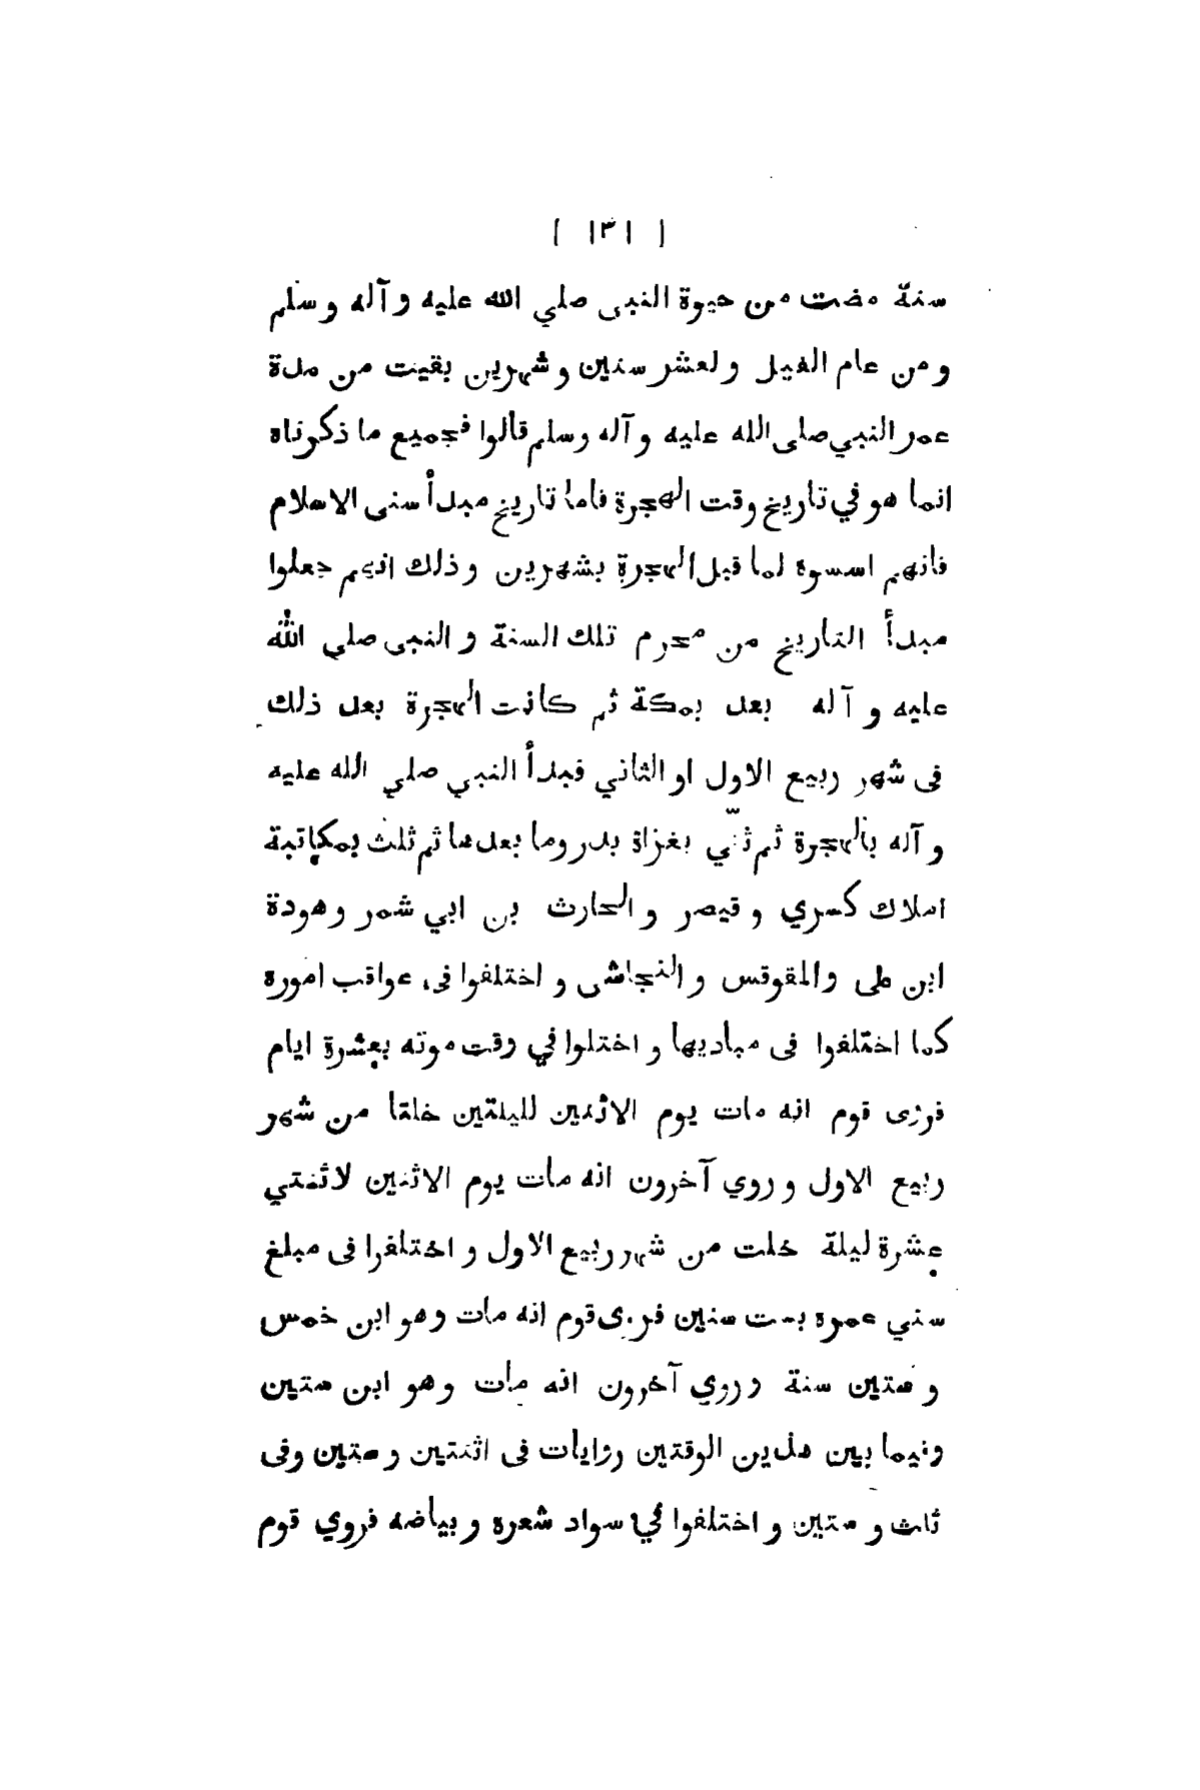 ( ١٣١ )
سنة مضت من حيوة النبى صلي الله عليه وآله وسلم
ومن عام الفيل ولعشر سنين وشهرين بقيت من مدة
عمر النبي صلى الله عليه وآله وسلم قالوا فجميع ما ذكرناه
انما هو في تاريخ وقت الهجرة فاما تاريخ مبدأ سنى الاسلام
فانهم اسسوة لما قبل الهجرة بشهرين وذلك انهم جعلوا
مبدأ التاريخ من محرم تلك السنة و النبى صلي الله
عليه و آله بعد بمكة ثم كانت الهجرة بعد ذلك
فى شهر ربيع الاول او الثاني فبدأ النبي صلي الله عليه
و آله بالهجرة ثم ثنّي بغزاة بدر وما بعدها ثم ثلث بمكاتبة
املاك كسري و قيصر و الحارث بن ابي شمر وهودة
ابن على والمقوقس و النجاشى و اختلفوا فى عواقب امورة
كما اختلفوا فى مباديها و اختلوا في وقت موته بعشرة ايام
فروى قوم انه مات يوم الاثنين لليلتين خلتا من شهر
ربيع الاول و روي آخرون انه مات يوم الاثنين لاثنتي
عشرة ليلة خلت من شهر ربيع الاول و اختلفوا فى مبلغ
سني عمره بست سنين فروى قوم انه مات وهو ابن خمس
و ستين سنة و روي آخرون انه مات وهو ابن ستين
وفيما بين هذين الوقتين روايات فى اثنتين و ستين وفى
ثلث و ستين و اختلفوا في سواد شعره و بياضه فروي قوم